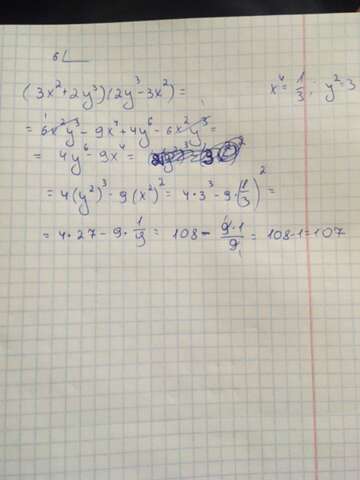 б)
(3x² + 2y³)(2y³ - 3x²) = x⁴ = 1/3; y² = 3
= 6x²y³ - 9x⁴ + 4y⁶ - 6x²y³ =
= 4y⁶ - 9x⁴ =
= 4(y²)³ - 9(x²)² = 4·3³ - 9·(1/3)² =
= 4·27 - 9·1/9 = 108 - 9·1/9 = 108-1=107